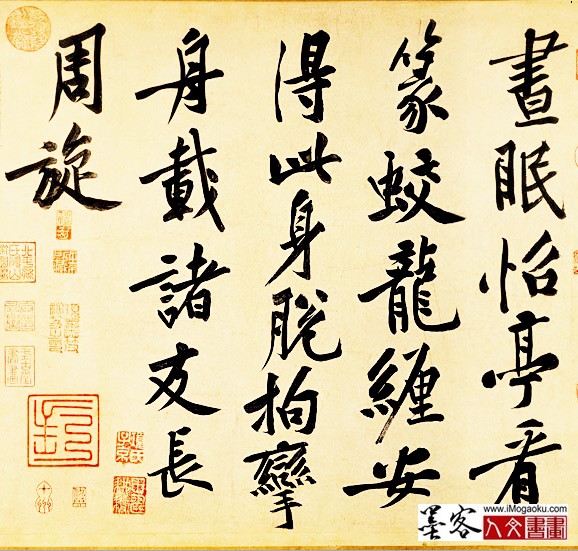 晝眠怡亭看
篆蛟龍纏安
得此身脫拘攣
舟載諸友長
周旋
墨客
www.iMogaoku.com
人文書畫